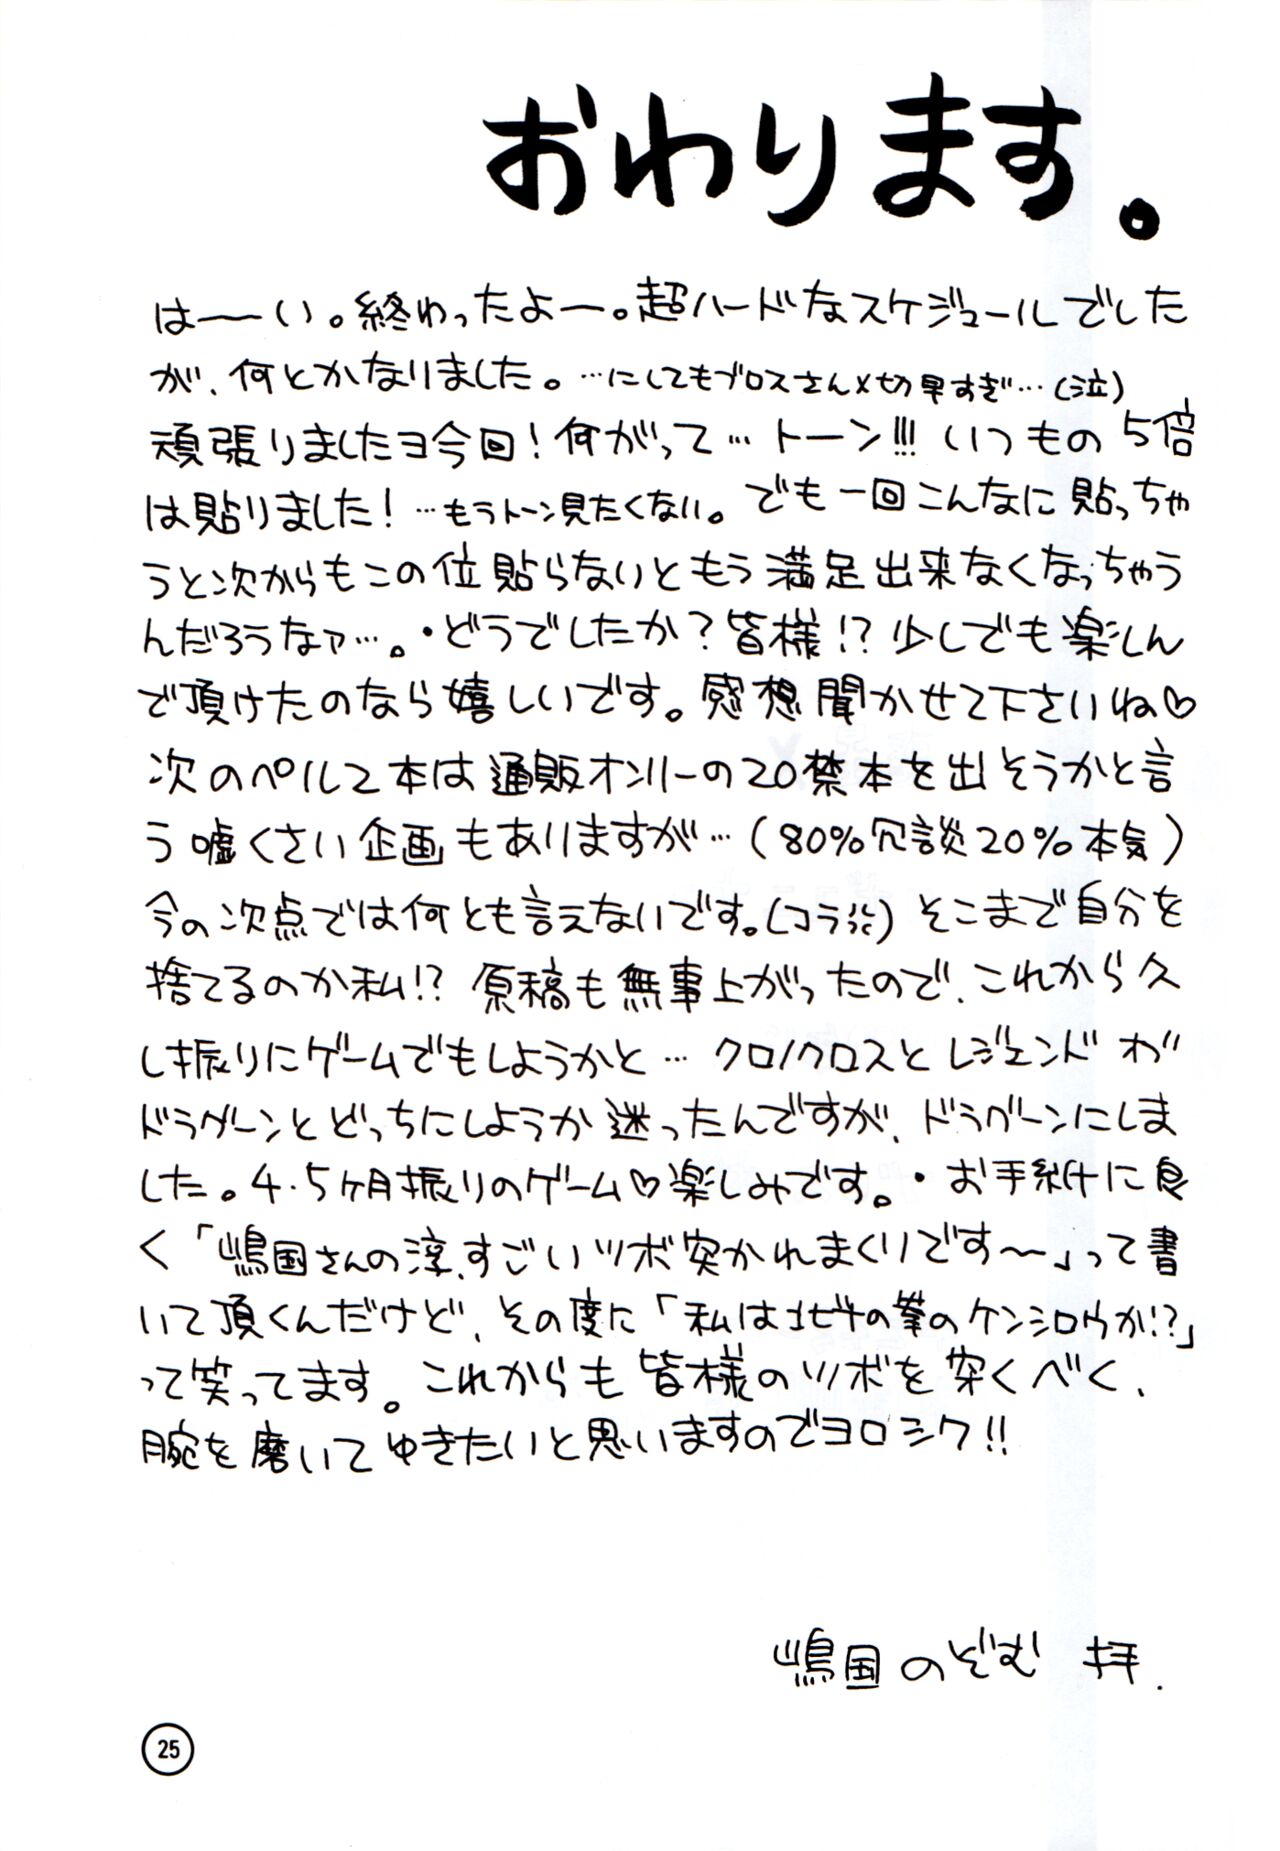 おわります。
は〜い。終わったよー。超ハードなスケジュールでした
が、何とかなりました。…にしてもブロスさん〆切早すぎ…(泣)
頑張りましたヨ今回!何がって…トーン!!!いつもの5倍
は貼りました!…もうトーン見たくない。でも一回こんなに貼っちゃ
うと次からもこの位貼らないともう満足出来なくなっちゃう
んだろうなァ…。・どうでしたか?皆様!?少しでも楽しん
で頂けたのなら嬉しいです。感想聞かせて下さいね♡
次のペルソ本は通販オンリーの20禁本を出そうかと言
う嘘くさい企画もありますが…(80%冗談20%本気)
今の次点では何とも言えないです。(コラ)そこまで自分を
捨てるのか私!?原稿も無事上がったので、これから久
し振りにゲームでもしようかと…クロノクロスとレジェンドオブ
ドラグーンとどっちにしようか迷ったんですが、ドラグーンにしま
した。4・5ヶ月振りのゲーム♡楽しみです。・お手紙に良
く「嶋国さんの淳、すごいツボ突かれまくりです〜」って書
いて頂くんだけど、その度に「私は北斗の拳のケンシロウか!?」
って笑ってます。これからも皆様のツボを突くべく、
腕を磨いてゆきたいと思いますのでヨロシク!!
嶋国のぞむ 拝.
25